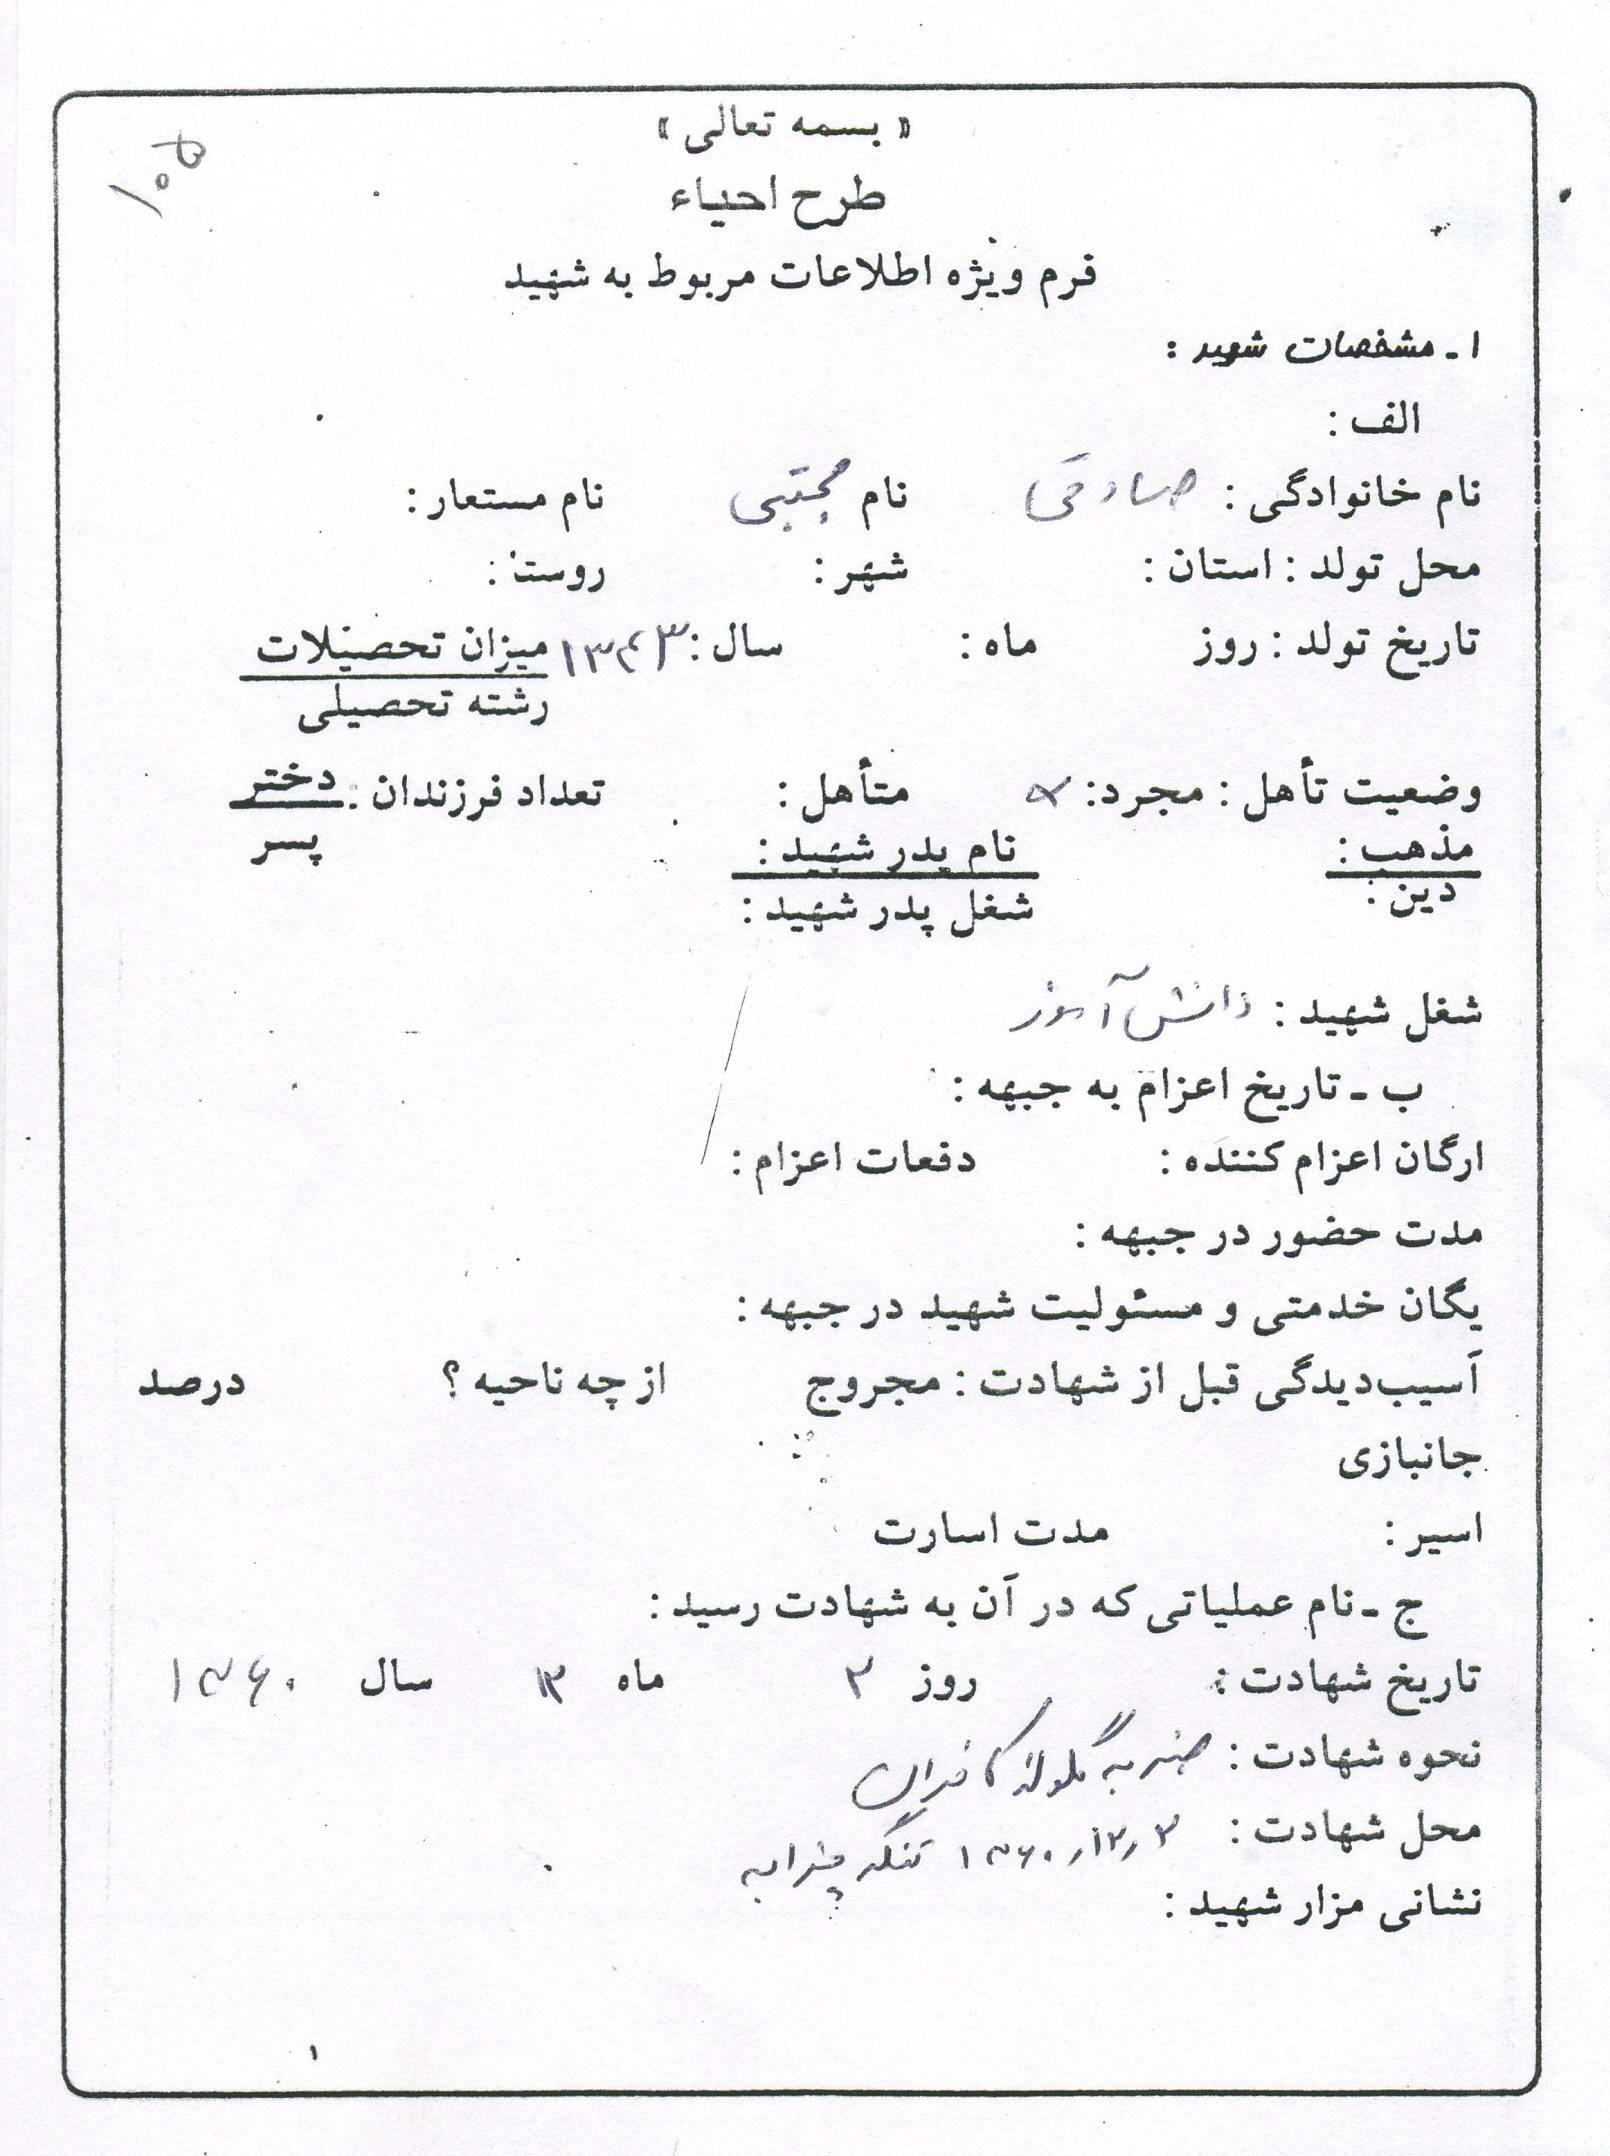 « بسمه تعالی »
۱۰۵
طرح احیاء
فرم ویژه اطلاعات مربوط به شهید
۱ ـ مشخصات شهید :
الف :
نام خانوادگی : صادقی نام مجتبی نام مستعار :
محل تولد : استان : شهر : روستا :
تاریخ تولد : روز ماه : سال : ۱۳۴۳ میزان تحصیلات
رشته تحصیلی
وضعیت تأهل : مجرد : × متأهل : تعداد فرزندان : دختر
پسر
مذهب : نام پدر شهید :
دین : شغل پدر شهید :
شغل شهید : دانش آموز
ب ـ تاریخ اعزام به جبهه :
ارگان اعزام کننده : دفعات اعزام :
مدت حضور در جبهه :
یگان خدمتی و مسئولیت شهید در جبهه :
آسیب‌دیدگی قبل از شهادت : مجروح از چه ناحیه ؟ درصد
جانبازی
اسیر : مدت اسارت
ج ـ نام عملیاتی که در آن به شهادت رسید :
تاریخ شهادت : روز ۲ ماه ۱۲ سال ۱۳۶۰
نحوه شهادت : ضربه گلوله کافران
محل شهادت : ۱۳۶۰/۱۲/۲ تنگه چزابه
نشانی مزار شهید :
۱